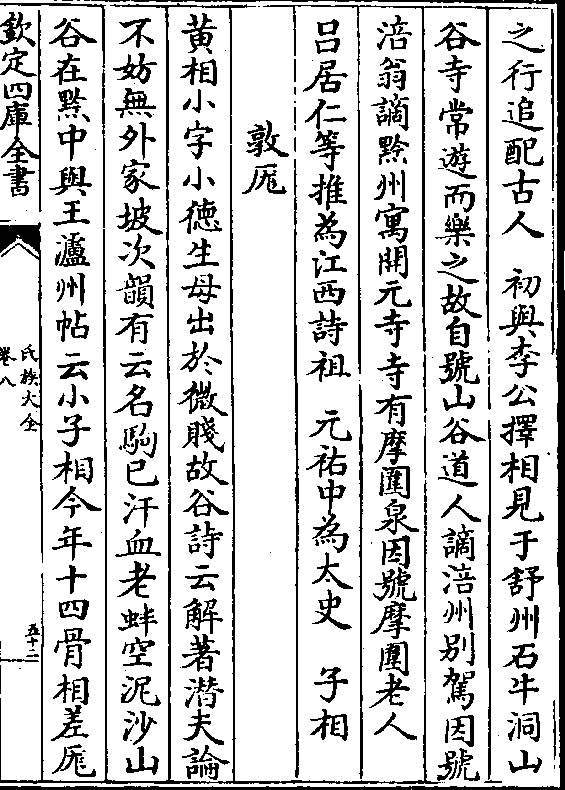 之行追配古人　初與李公擇相見于舒州石牛洞山
谷寺常遊而樂之故自號山谷道人謫涪州别駕因號
涪翁謫黔州寓開元寺寺有摩圍泉因號摩圍老人
吕居仁等推為江西詩祖　元祐中為太史　子相
敦厖
黄相小字小徳生母出於微賤故谷詩云解著潜夫論
不妨無外家坡次韻有云名駒已汗血老蚌空泥沙山
谷在黔中與王瀘州帖云小子相今年十四骨相差厖
欽定四庫全書
氏族大全
卷八
五十二